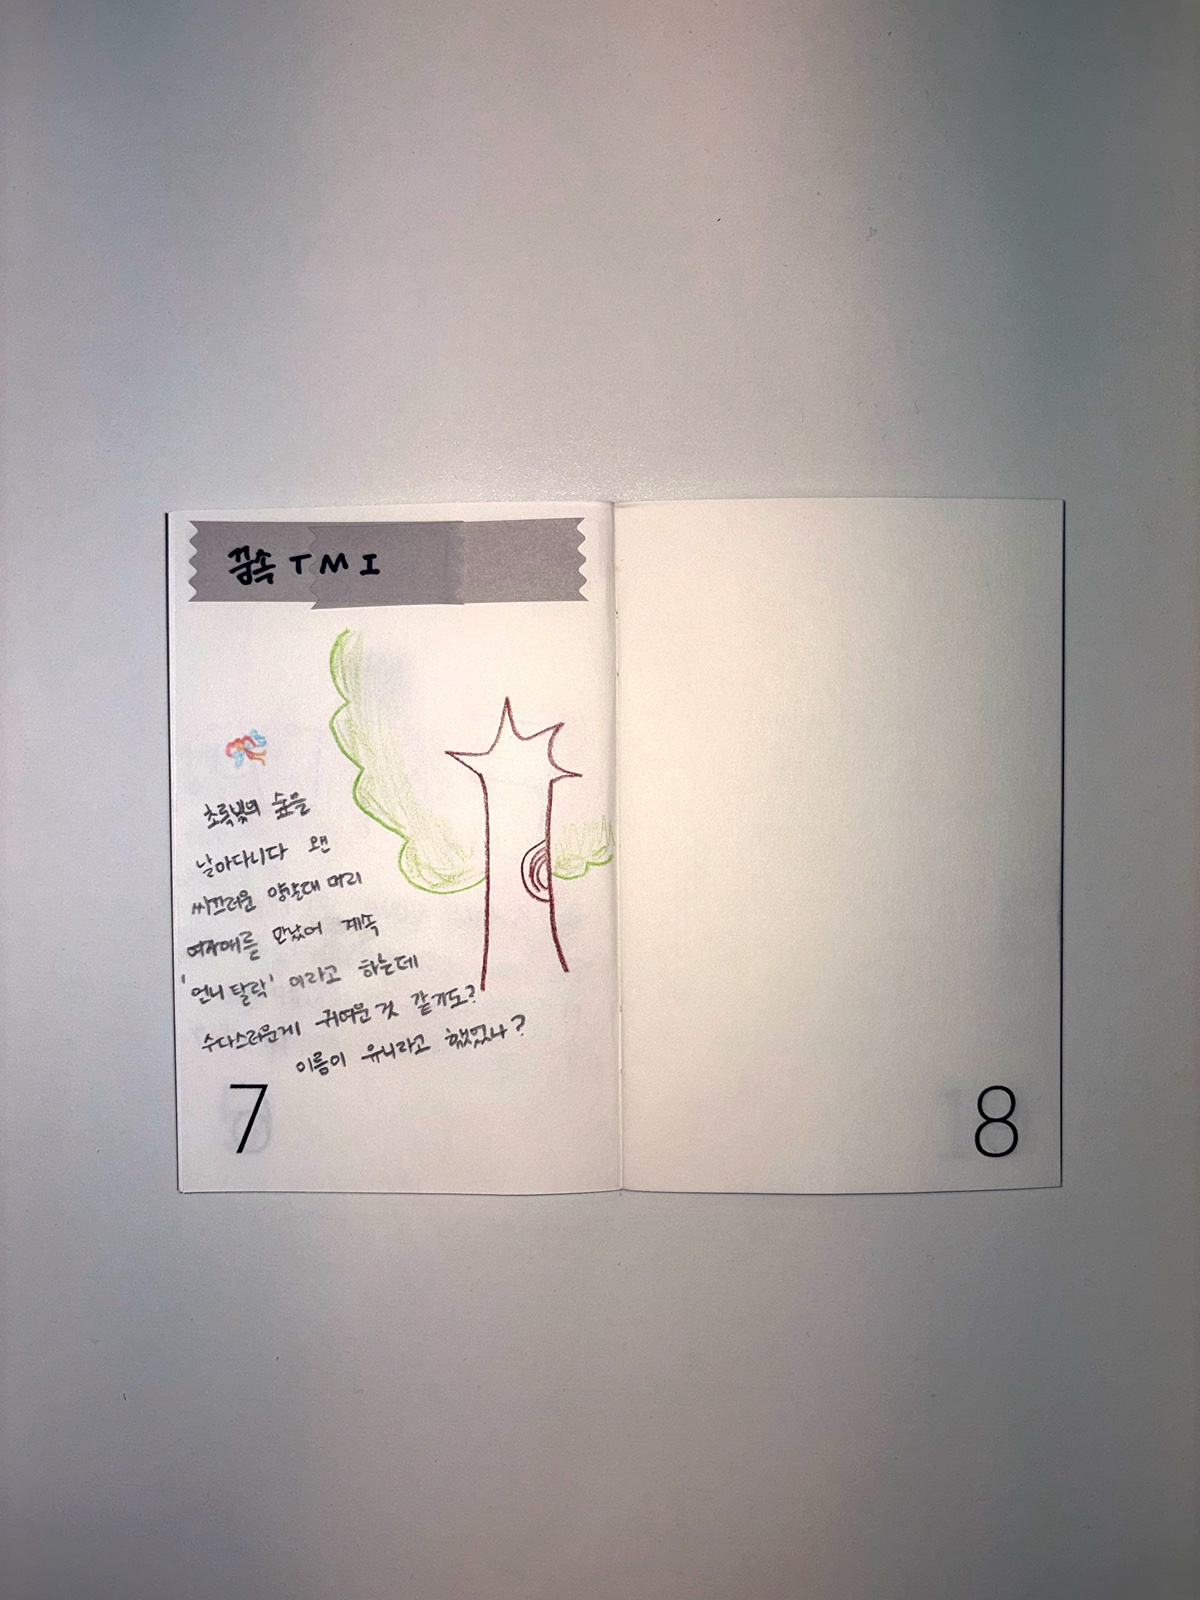 꿈속 TMI
초록빛의 숲을
날아다니다 왠
싸끄러운 양갈대 머리
여자애를 만났어 계속
'언니 탈락' 이라고 하는데
수다스러운게 귀여운 것 같기도?
이름이 유니라고 했었나?
7
8